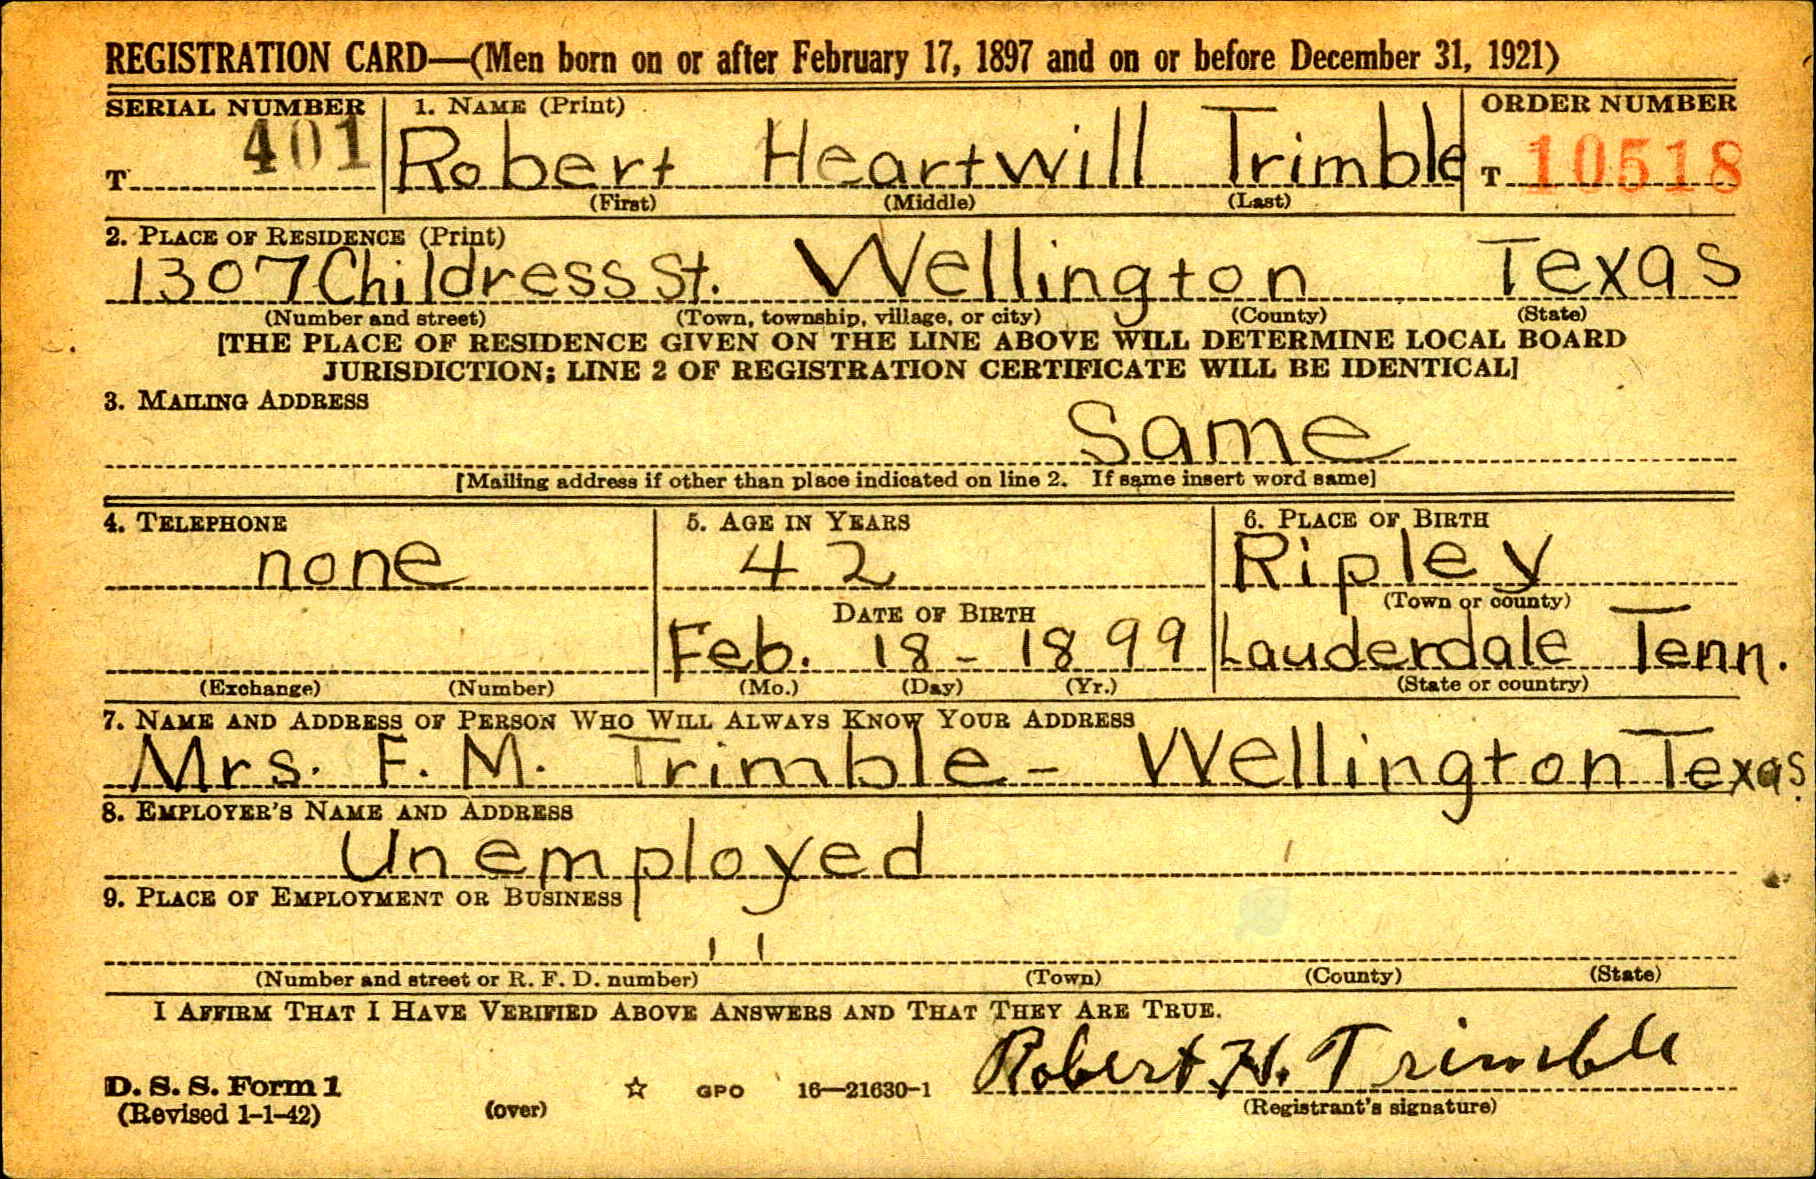 REGISTRATION CARD—(Men born on or after February 17, 1897 and on or before December 31, 1921)
SERIAL NUMBER 1. NAME (Print) ORDER NUMBER
T 401 Robert Heartwill Trimble T 10518
(First) (Middle) (Last)
2. PLACE OF RESIDENCE (Print)
1307 Childress St. Wellington Texas
(Number and street) (Town, township, village, or city) (County) (State)
[THE PLACE OF RESIDENCE GIVEN ON THE LINE ABOVE WILL DETERMINE LOCAL BOARD
JURISDICTION; LINE 2 OF REGISTRATION CERTIFICATE WILL BE IDENTICAL]
3. MAILING ADDRESS
Same
[Mailing address if other than place indicated on line 2. If same insert word same]
4. TELEPHONE 5. AGE IN YEARS 6. PLACE OF BIRTH
none 42 Ripley
DATE OF BIRTH (Town or county)
Feb. 18 - 1899 Lauderdale Tenn.
(Exchange) (Number) (Mo.) (Day) (Yr.) (State or country)
7. NAME AND ADDRESS OF PERSON WHO WILL ALWAYS KNOW YOUR ADDRESS
Mrs. F. M. Trimble - Wellington Texas.
8. EMPLOYER'S NAME AND ADDRESS
Unemployed
9. PLACE OF EMPLOYMENT OR BUSINESS
" 
(Number and street or R. F. D. number) (Town) (County) (State)
I AFFIRM THAT I HAVE VERIFIED ABOVE ANSWERS AND THAT THEY ARE TRUE.
Robert H. Trimble
D. S. S. Form 1 GPO 16—21630-1
(Revised 1-1-42) (over) (Registrant's signature)